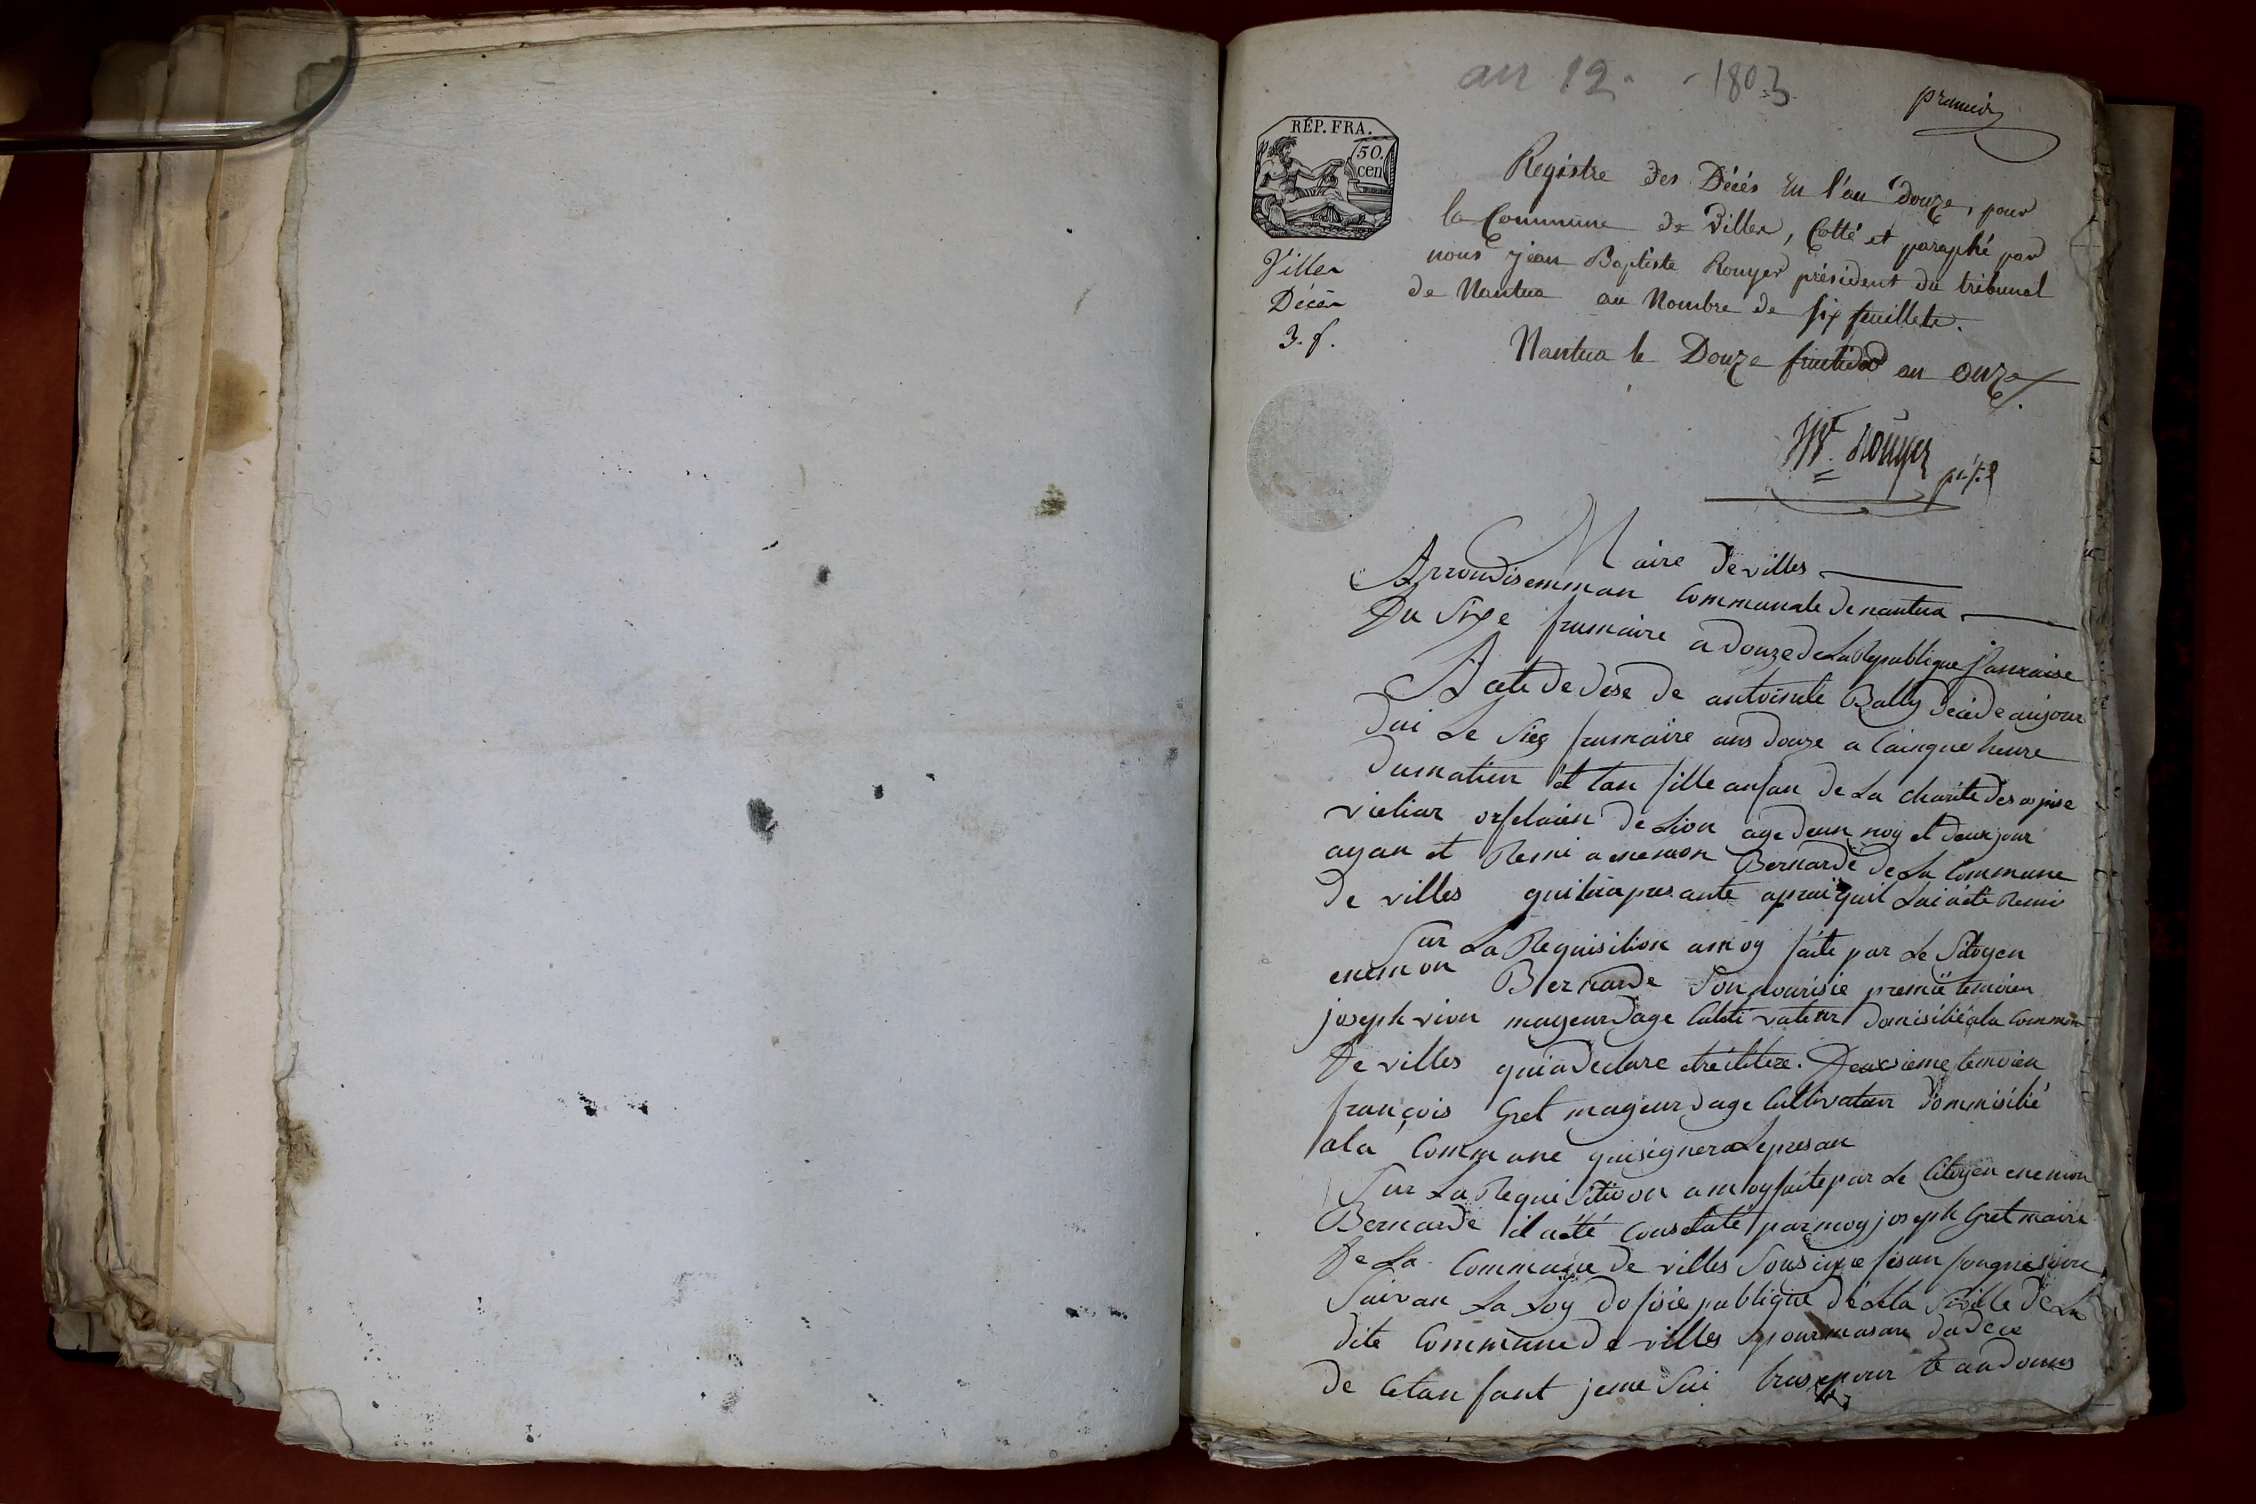 an 12. - 1803
premier
RÉP. FRA.
50.
cen
Villes
Décès
3. f.
Registre des Décés En l'an Douze, pour
la Commune de Villes, Cotté et paraphé par
nous jean Baptiste Rouyer président du tribunal
de Nantua au Nombre de six feuillets.
Nantua le Douze fructidor an onze
Rouyer
Maire de villes
Arrondisemman Communale de nantua
Du Sixe frumaire a douze de La Republique
Acte de dese de antoinete Bally decede aujour
dui Le Sies frumaire ans douze a Cainque heure
dumatien et tan fille anfan de La charite des ospise
vieliar orfelaien de Lion age deun moy et deux jour
ayan et Remi a enemon Bernarde de La Commune
de villes qui presante aprai quil Lui aété Remi
Sur La Requisition amoy faite par Le Sitoyen
enemon Bernarde Son nourisie premié temoien
joseph vion mageurdage Culti vateur domisilié ala Commun
De villes qui a declare etre iletere. Deuxsieme temoien
françois Gret mageurdage Cultivateur dommisilié
ala Commune qui signera Le presan
Sur La Requisition amoy faite par Le Citoyen enemon
Bernarde il aété Constaté par moy joseph Gret maire
De La Commune de villes Sousigne fesan
Suivan La Loy publique de La dela
dite Commune de villes pour masan dudece
de Cetan fant jeme Sui